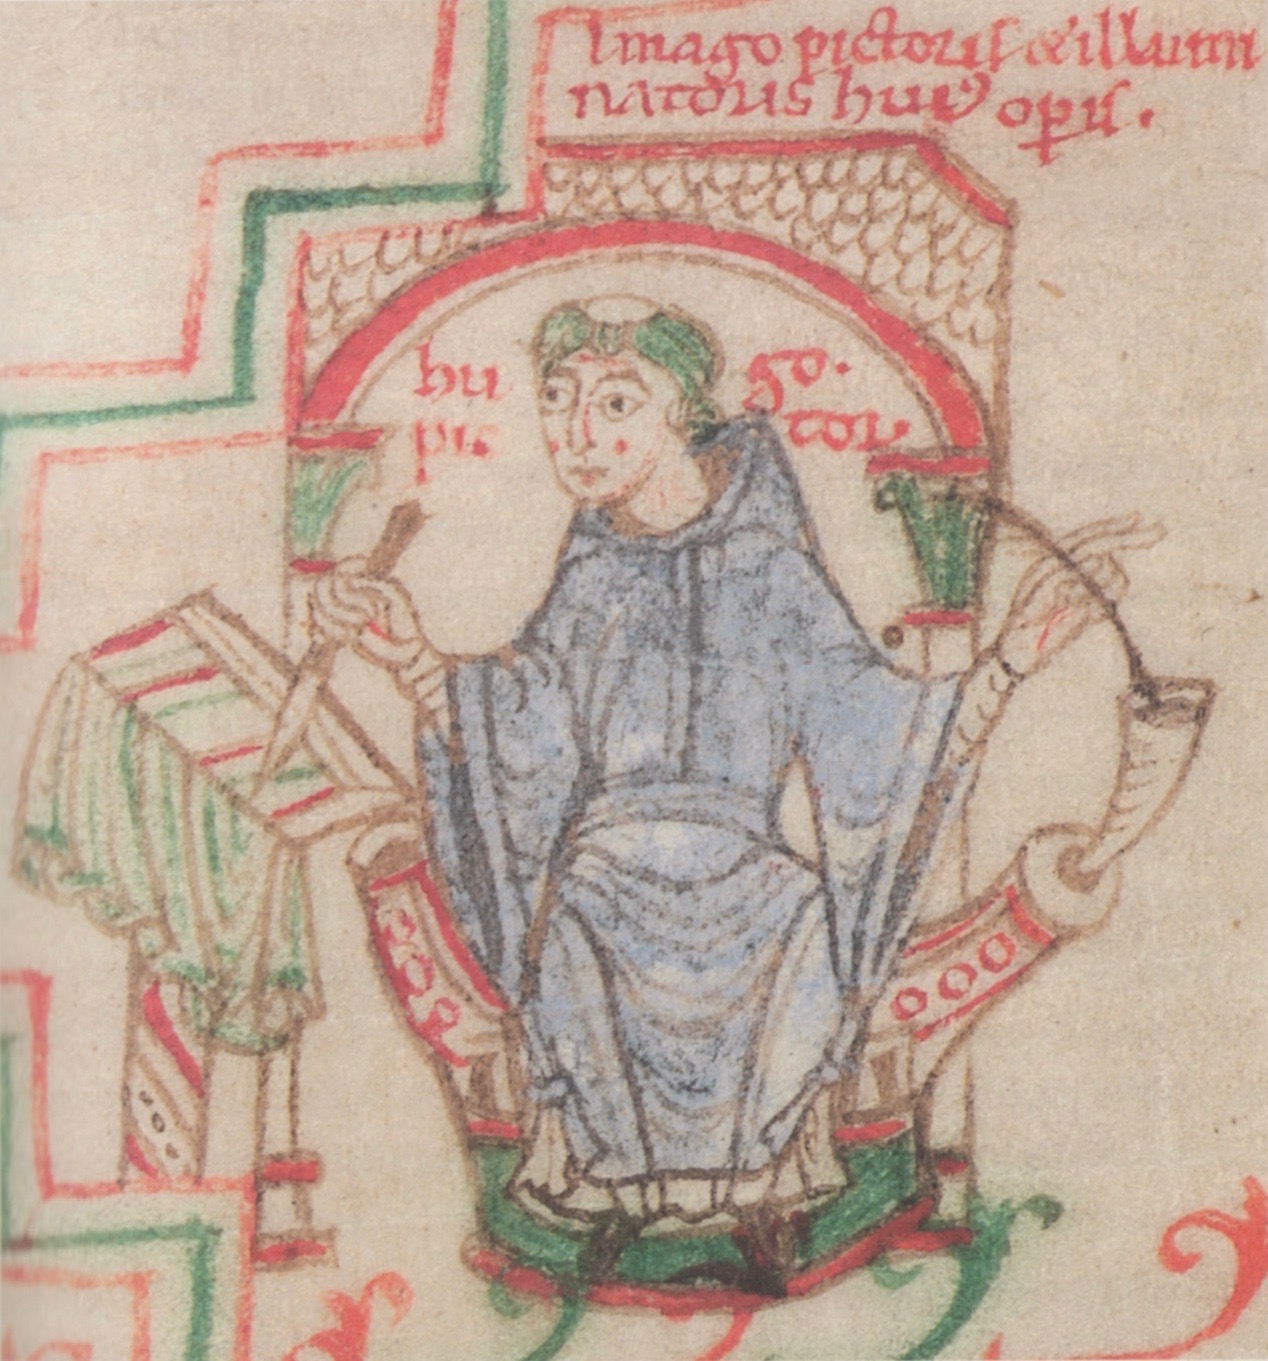 Imago pictoris & illumi
natoris huiꝰ oꝑis.
hu go.
pic tor.